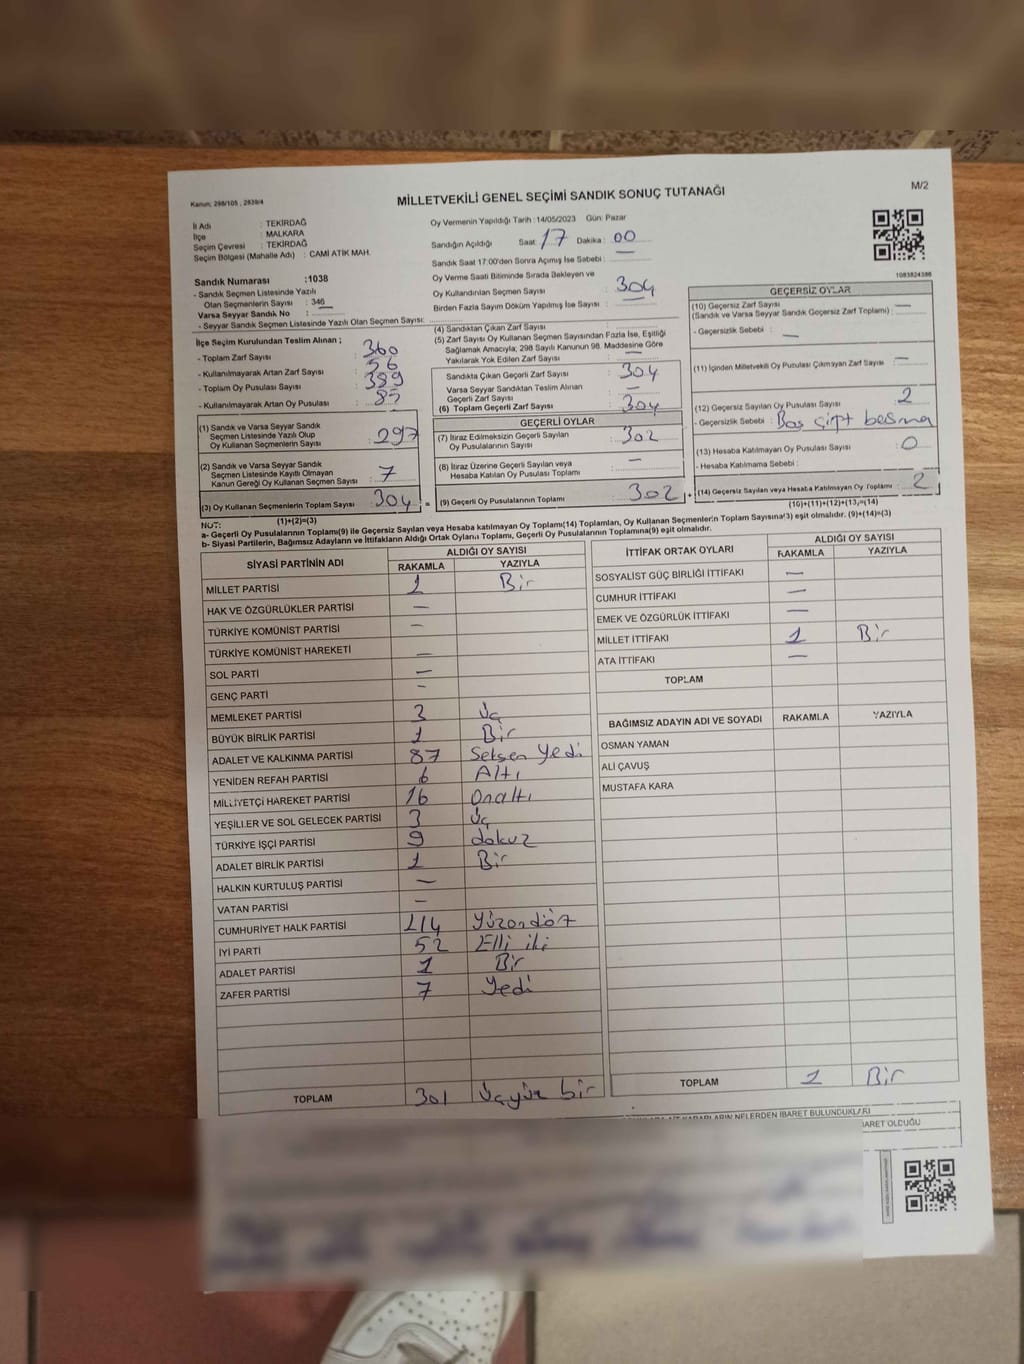 Kanun; 298/105 , 2839/4
MİLLETVEKİLİ GENEL SEÇİMİ SANDIK SONUÇ TUTANAĞI
M/2
İl Adı : TEKİRDAĞ
İlçe : MALKARA
Seçim Çevresi : TEKİRDAĞ
Seçim Bölgesi (Mahalle Adı) : CAMİ ATİK MAH.
Oy Vermenin Yapıldığı Tarih : 14/05/2023 Gün: Pazar
Sandığın Açıldığı Saat : 17 Dakika : 00
Sandık Saat 17:00'den Sonra Açılmış İse Sebebi :
Oy Verme Saati Bitiminde Sırada Bekleyen ve
Oy Kullandırılan Seçmen Sayısı : 304
Birden Fazla Sayım Döküm Yapılmış İse Sayısı : —
1083824386
Sandık Numarası :1038
- Sandık Seçmen Listesinde Yazılı
Olan Seçmenlerin Sayısı : 346
Varsa Seyyar Sandık No : —
- Seyyar Sandık Seçmen Listesinde Yazılı Olan Seçmen Sayısı:
İlçe Seçim Kurulundan Teslim Alınan ;
- Toplam Zarf Sayısı : 360
- Kullanılmayarak Artan Zarf Sayısı : 56
- Toplam Oy Pusulası Sayısı : 389
- Kullanılmayarak Artan Oy Pusulası : 85
(1) Sandık ve Varsa Seyyar Sandık
Seçmen Listesinde Yazılı Olup
Oy Kullanan Seçmenlerin Sayısı : 297
(2) Sandık ve Varsa Seyyar Sandık
Seçmen Listesinde Kayıtlı Olmayan
Kanun Gereği Oy Kullanan Seçmen Sayısı : 7
(3) Oy Kullanan Seçmenlerin Toplam Sayısı : 304 =
(1)+(2)=(3)
(4) Sandıktan Çıkan Zarf Sayısı :
(5) Zarf Sayısı Oy Kullanan Seçmen Sayısından Fazla İse, Eşitliği
Sağlamak Amacıyla; 298 Sayılı Kanunun 98. Maddesine Göre
Yakılarak Yok Edilen Zarf Sayısı : —
Sandıkta Çıkan Geçerli Zarf Sayısı : 304
Varsa Seyyar Sandıktan Teslim Alınan
Geçerli Zarf Sayısı : —
(6) Toplam Geçerli Zarf Sayısı : 304
GEÇERLİ OYLAR
(7) İtiraz Edilmeksizin Geçerli Sayılan
Oy Pusulalarının Sayısı : 302
(8) İtiraz Üzerine Geçerli Sayılan veya
Hesaba Katılan Oy Pusulası Toplamı : —
(9) Geçerli Oy Pusulalarının Toplamı : 302 +
GEÇERSİZ OYLAR
(10) Geçersiz Zarf Sayısı : —
(Sandık ve Varsa Seyyar Sandık Geçersiz Zarf Toplamı) :
- Geçersizlik Sebebi : —
(11) İçinden Milletvekili Oy Pusulası Çıkmayan Zarf Sayısı : —
(12) Geçersiz Sayılan Oy Pusulası Sayısı : 2
- Geçersizlik Sebebi : Boş çift basma
(13) Hesaba Katılmayan Oy Pusulası Sayısı : 0
- Hesaba Katılmama Sebebi :
(14) Geçersiz Sayılan veya Hesaba Katılmayan Oy Toplamı : 2
(10)+(11)+(12)+(13)=(14)
NOT:
a- Geçerli Oy Pusulalarının Toplamı(9) ile Geçersiz Sayılan veya Hesaba katılmayan Oy Toplamı(14) Toplamları, Oy Kullanan Seçmenlerin Toplam Sayısına(3) eşit olmalıdır. (9)+(14)=(3)
b- Siyasi Partilerin, Bağımsız Adayların ve İttifakların Aldığı Ortak Oyların Toplamı, Geçerli Oy Pusulalarının Toplamına(9) eşit olmalıdır.
SİYASİ PARTİNİN ADI ALDIĞI OY SAYISI
RAKAMLA YAZIYLA
MİLLET PARTİSİ 1 Bir
HAK VE ÖZGÜRLÜKLER PARTİSİ —
TÜRKİYE KOMÜNİST PARTİSİ —
TÜRKİYE KOMÜNİST HAREKETİ —
SOL PARTİ —
GENÇ PARTİ —
MEMLEKET PARTİSİ 3 Üç
BÜYÜK BİRLİK PARTİSİ 1 Bir
ADALET VE KALKINMA PARTİSİ 87 Seksen Yedi
YENİDEN REFAH PARTİSİ 6 Altı
MİLLİYETÇİ HAREKET PARTİSİ 16 Onaltı
YEŞİLLER VE SOL GELECEK PARTİSİ 3 Üç
TÜRKİYE İŞÇİ PARTİSİ 9 dokuz
ADALET BİRLİK PARTİSİ 1 Bir
HALKIN KURTULUŞ PARTİSİ —
VATAN PARTİSİ —
CUMHURİYET HALK PARTİSİ 114 Yüzondört
İYİ PARTİ 52 Elli iki
ADALET PARTİSİ 1 Bir
ZAFER PARTİSİ 7 Yedi
TOPLAM 301 Üçyüz bir
İTTİFAK ORTAK OYLARI ALDIĞI OY SAYISI
RAKAMLA YAZIYLA
SOSYALİST GÜÇ BİRLİĞİ İTTİFAKI —
CUMHUR İTTİFAKI —
EMEK VE ÖZGÜRLÜK İTTİFAKI —
MİLLET İTTİFAKI 1 Bir
ATA İTTİFAKI —
TOPLAM
BAĞIMSIZ ADAYIN ADI VE SOYADI RAKAMLA YAZIYLA
OSMAN YAMAN
ALİ ÇAVUŞ
MUSTAFA KARA
TOPLAM 1 Bir
KARARLARIN NELERDEN İBARET BULUNDUKLARI
İBARET OLDUĞU